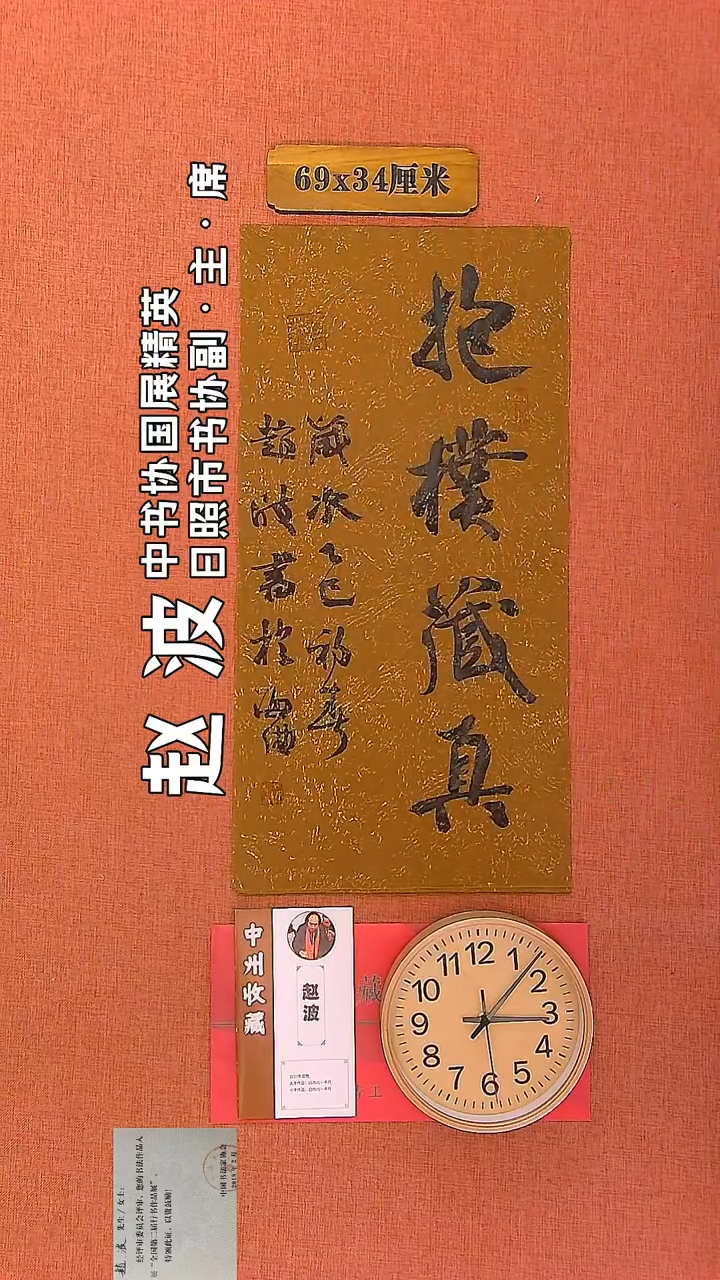 69x34厘米
抱樸藏真
歲次乙巳初春
趙波書於海曲
赵波
中书协国展精英
日照市书协副·主·席
中
藏
赵波
藏
12
1
2
3
4
5
6
7
8
9
10
11
赵波 先生/女士:
经评审委员会评审,您的书法作品入
展“全国第二届行书作品展”。
特颁此证,以资鼓励!
中国书法家协会